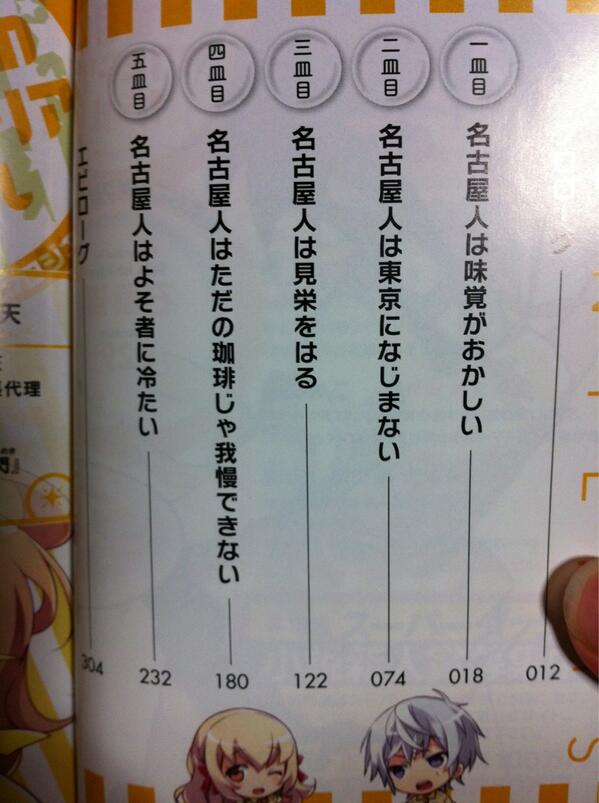 012
一皿目 名古屋人は味覚がおかしい 018
二皿目 名古屋人は東京になじまない 074
三皿目 名古屋人は見栄をはる 122
四皿目 名古屋人はただの珈琲じゃ我慢できない 180
五皿目 名古屋人はよそ者に冷たい 232
エピローグ 304
天
代理